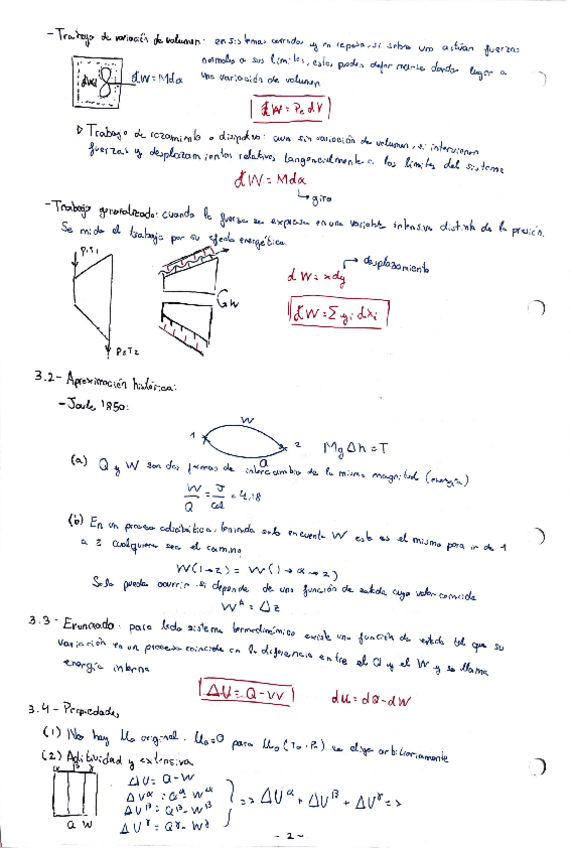 - Trabajo de variación de volumen: en sistemas cerrados y en reposo, si sobre uno actúan fuerzas
normales a sus límites, estos pueden deformarse dando lugar a
una variación de volumen
đW = Mdα
đW = Pe dV
Trabajo de rozamiento o disipativo: aun sin variación de volumen, si intervienen
fuerzas y desplazamientos relativos tangencialmente a los límites del sistema
đW = Mdα
giro
- Trabajo generalizado: cuando la fuerza se expresa en una variable intensiva distinta de la presión.
Se mide el trabajo por su efecto energético.
P1T1
desplazamiento
đW = xdy
W
đW = Σ yi dxi
P2T2
3.2 - Aproximación histórica:
- Joule 1850:
W
1
2
Q
MgΔh = T
(a) Q y W son dos formas de intercambio de la misma magnitud (energía)
W/Q = J/cal = 4,18
(b) En un proceso adiabático, teniendo solo en cuenta W este es el mismo para ir de 1
a 2 cualquiera sea el camino
W(1→2) = W(1→α→2)
Solo puede ocurrir si depende de una función de estado cuyo valor coincide
Wᴬ = Δz
3.3 - Enunciado: para todo sistema termodinámico existe una función de estado tal que su
variación en un proceso coincide con la diferencia entre el Q y el W y se llama
energía interna
ΔU = Q - W
dU = dQ - dW
3.4 - Propiedades
(1) No hay U0 original. U0=0 para U0 (T0, P0) se elige arbitrariamente
(2) Aditividad y extensiva
α β γ
ΔU = Q - W
ΔUα = Qα - Wα
ΔUβ = Qβ - Wβ
ΔUγ = Qγ - Wγ
=> ΔUα + ΔUβ + ΔUγ =>
Q W
- 2 -